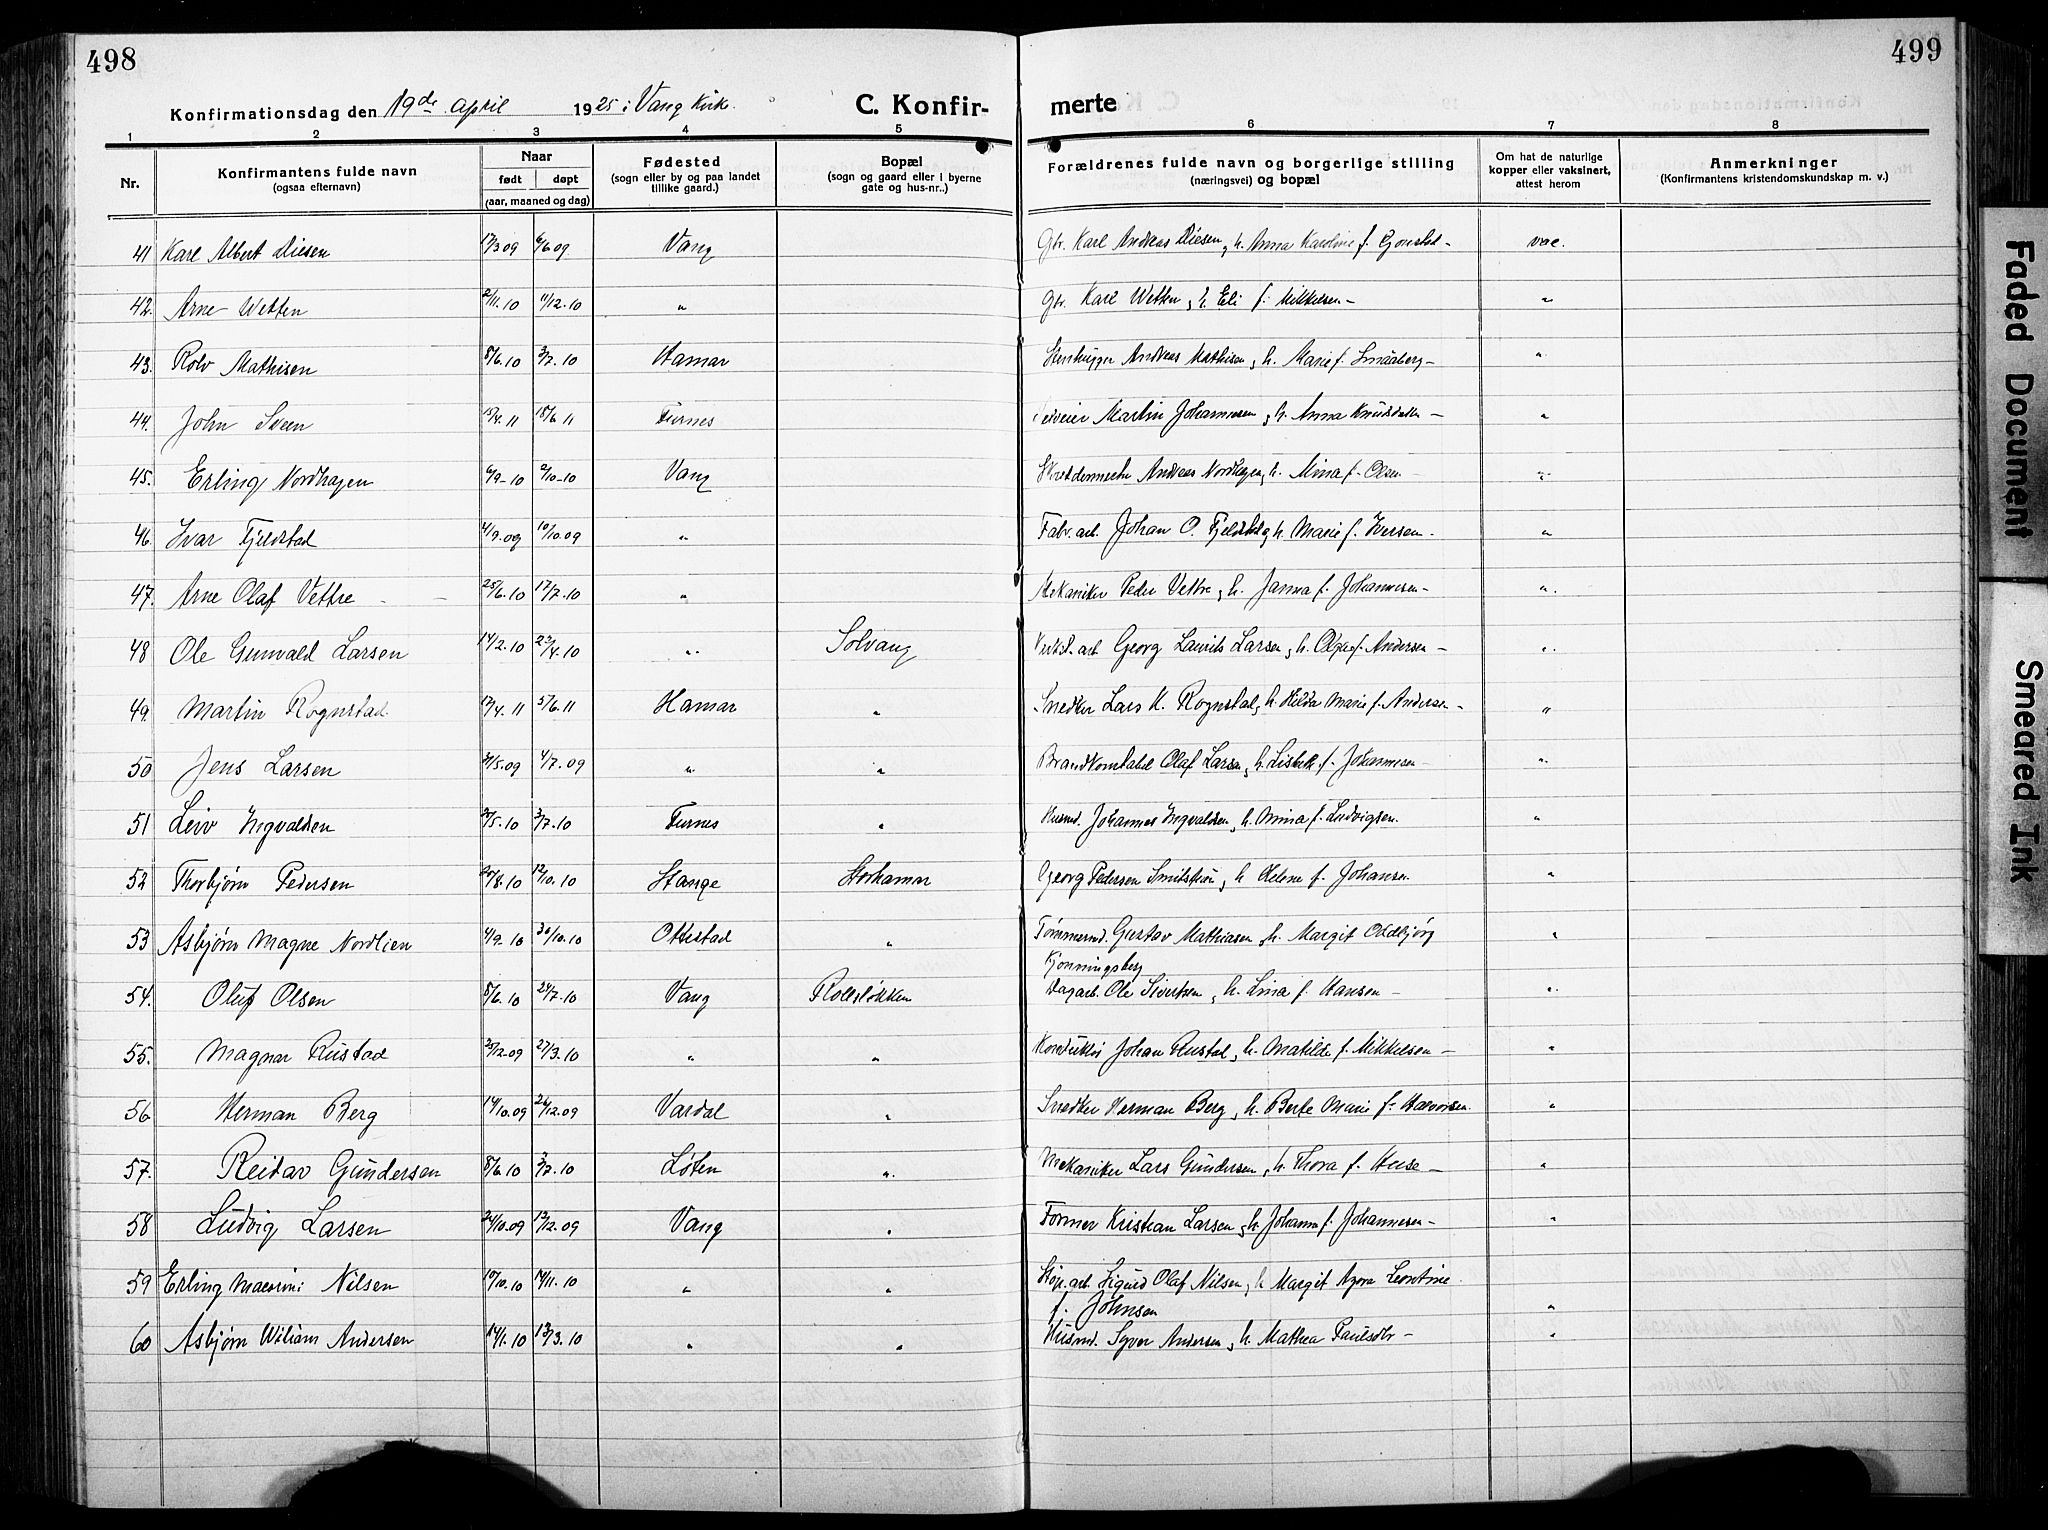 498
499
Konfirmationsdag den 19de april 1925 i Vang Kirke.
C. Konfir-
merte
1 2 3 4 5 6 7 8
Nr.
Konfirmantens fulde navn
(ogsaa efternavn)
Naar
født døpt
(aar, maaned og dag)
Fødested
(sogn eller by og paa landet
tillike gaard.)
Bopæl
(sogn og gaard eller i byerne
gate og hus-nr..)
Forældrenes fulde navn og borgerlige stilling
(næringsvei) og bopæl
Om hat de naturlige
kopper eller vaksinert,
attest herom
Anmerkninger
(Konfirmantens kristendomskundskap m. v.)
41 Karl Albert Diesen 17/3 09 6/6 09 Vang Gbr. Karl Andreas Diesen, h. Anna Karoline f. vac.
42. Arne Wetten 2/11.10 11/12.10 " Gbr. Karl Wetten, h. Eli f. Mikkelsen - "
43. Rolv Mathisen 8/6.10 3/7.10 Hamar Stenhugger Andreas Mathisen, h. Marie f. Smaaberg - "
44. John Sveen 15/4.11 18/6 11 Furnes Martin Johannesen, h. Anna Knudsdatter - "
45. Erling Nordhagen 6/9-10 9/10-10 Vang Andreas Nordhagen, h. Mina f. Olsen "
46. Ivar Fjeldstad 4/9.09 10/10.09 " Fabr.arb. Johan O. Fjeldstad, h. Marie f. Iversen. "
47. Arne Olaf Vettre 25/6.10 17/7.10 " Mekaniker Peder Vettre, h. Janna f. Johannesen - "
48 Ole Gunvald Larsen 14/2.10 23/4.10 " Solvang Georg Laurits Larsen, h. Olga f. Andersen - "
49. Martin Rognstad 17/4.11 5/6.11 Hamar " Snedker Lars K. Rognstad, h. Hilda Marie f. Andersen - "
50 Jens Larsen 31/5.09 4/7.09 " " Brandkonstabel Olaf Larsen, h. Lisbeth f. Johannesen - "
51 Leiv Ingvaldsen 3/7.10 Furnes " Husmd. Johannes Ingvaldsen, h. Mina f. Ludvigsen. "
52 Thorbjørn Pedersen 12/10.10 Stange Storhamar Georg Pedersen h. Helene f. Johansen "
53 Asbjørn Magne Nordlien 4/9.10 30/10.10 Ottestad " Tømmermd. Gustav Mathiasen, h. Margit Oddbjørg
Kjonningsberg "
54. Oluf Olsen 8/6.10 24/7.10 Vang Rolsløkken Dagarb. Ole Sivertsen, h. Lina f. Hansen - "
55. Magnar Rustad 27/3.10 " " Konduktør Johan Rustad, h. Matilde f. Mikkelsen - "
56 Herman Berg 14/10.09 26/12.09 Vardal " Snedker Herman Berg, h. Berte Marie f. Halvorsen. "
57. Reidar Gundersen 8/6.10 3/7.10 Løten " Mekaniker Lars Gundersen, h. Thora f. "
58 Ludvig Larsen 24/10.09 12/12.09 Vang " Former Kristian Larsen, h. Johanne f. Johannesen - "
59 Erling Nilsen 10/10.10 14/11.10 " " Sigurd Olaf Nilsen, h. Margit Leontine
f. Johnsen "
60 Asbjørn Wiliam Andersen 14/1.10 13/3.10 " " Husmd. Syver Andersen, h. Mathea Paulsdtr - "
Faded Document
Smeared Ink